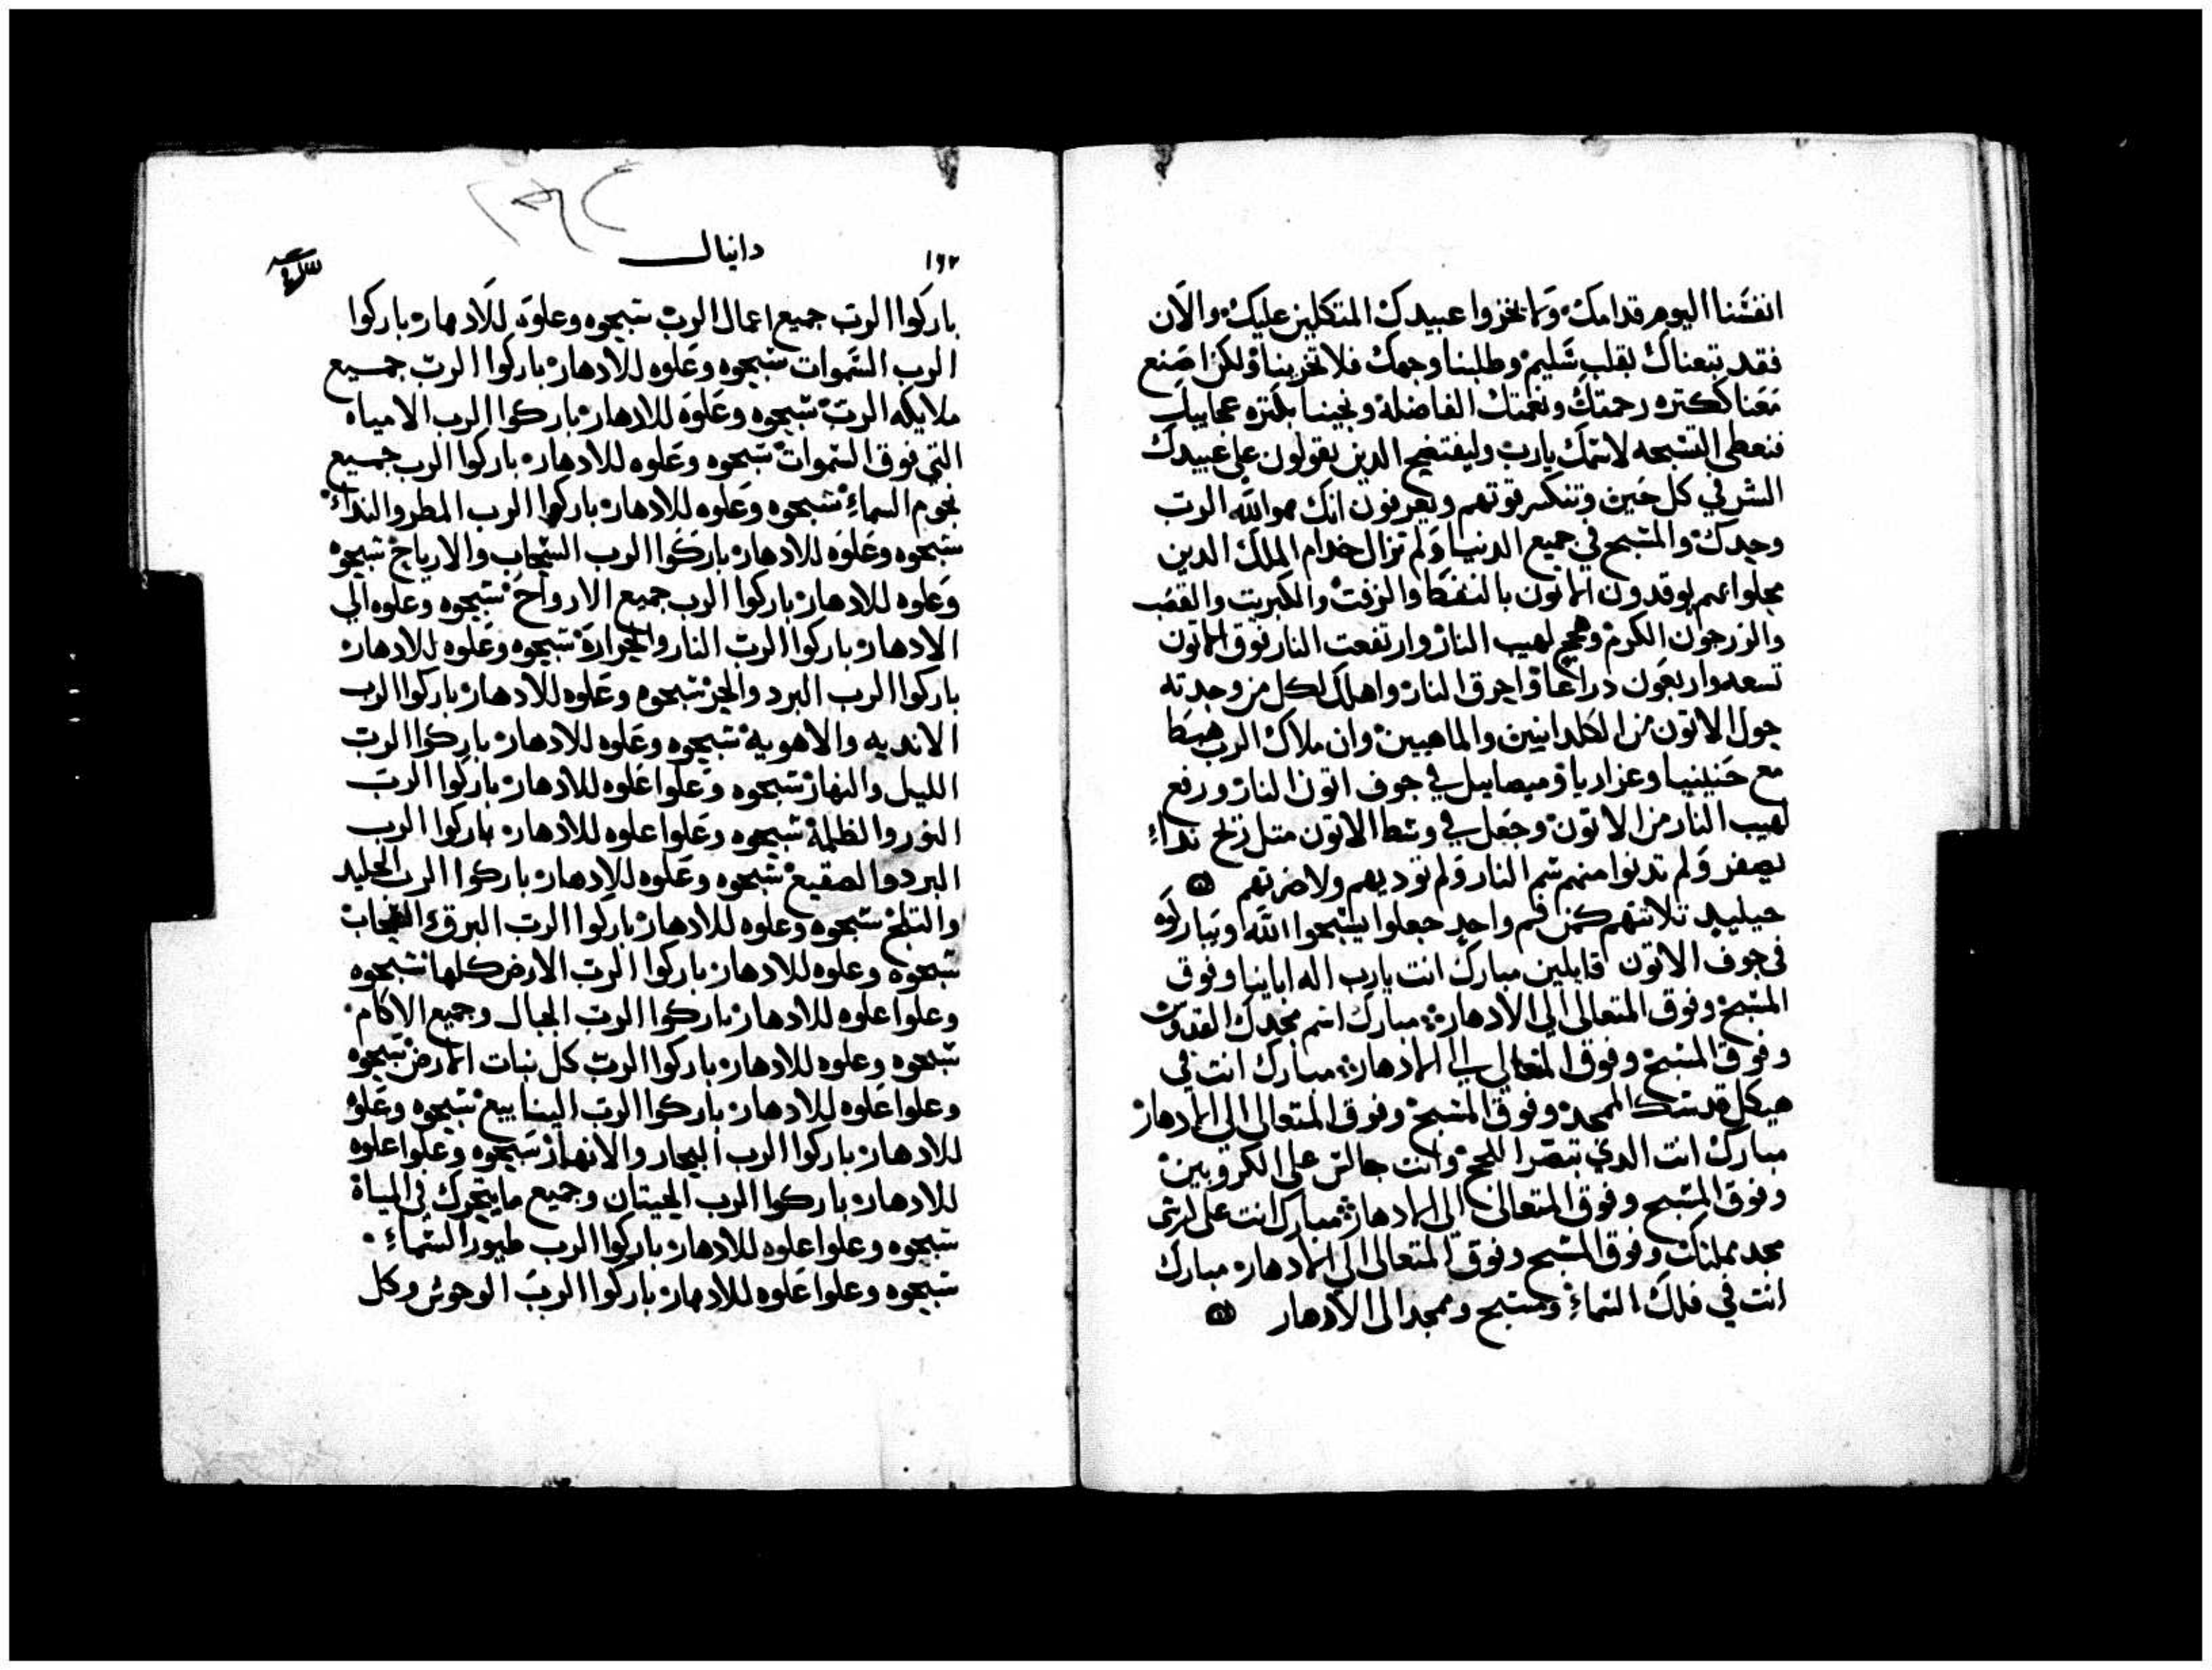 انفسنا اليوم قدامك ولا يخزوا عبيدك المتكلين عليك والان
فقد تبعناك بقلب سليم وطلبنا وجهك فلا تخزينا ولكن اصنع
معنا ككتره رحمتك ونعمتك الفاضلة ونجينا بكتره عجايبك
فنعطى التسبحه لاسمك يارب وليفتضح الدين يقولون على عبيدك
الشر في كل حين وتنكسر قوتهم ويعرفون انك هو الله الرب
وحدك والمسبح في جميع الدنيا ولم تزال خدام الملك الدين
يوقدون الاتون بالنفط والزفت والكبريت والقضب
والزرجون الكرم لهيب النار وارتفعت النار فوق الاتون
تسعه واربعون دراعا واحرق النار واهلك لكل من وجدته
حول الاتون من الكلدانيين والماهيين وان ملاك الرب هبط
مع حنينيا وعزاريا وميصاييل في جوف اتون النار ورفع
لهيب النار من الاتون وجعل في وسط الاتون متل ريح نداء
يصفر ولم تدنوا منهم شم النار ولم توديهم ولا ضرتهم
حينيد تلاتتهم كمن فم واحد جعلوا يسبحوا الله ويباركوه
في جوف الاتون قايلين مبارك انت يارب اله اباينا وفوق
المسبح وفوق المتعالى الى الادهار مبارك اسم مجدك القدوس
وفوق المسبح وفوق المتعالى الى الادهار مبارك انت في
هيكل قدسك الممجد وفوق المسبح وفوق المتعالى الى الادهار
مبارك انت الدي تبصر اللجج وانت جالس على الكروبين
وفوق المسبح وفوق المتعالى الى الادهار مبارك انت على كرسى
مجد مملكتك وفوق المسبح وفوق المتعالى الى الادهار مبارك
انت في فلك السماء ومسبح وممجد الى الادهار
١٦٢
دانيال
باركوا الرب جميع اعمال الرب سبحوه وعلوه للادهار باركوا
الرب السموات سبحوه وعلوه للادهار باركوا الرب جميع
ملايكه الرب سبحوه وعلوه للادهار باركوا الرب الامياه
التي فوق السموات سبحوه وعلوه للادهار باركوا الرب جميع
نجوم السماء سبحوه وعلوه للادهار باركوا الرب المطر والنداء
سبحوه وعلوه للادهار باركوا الرب السحاب والارياح سبحوه
وعلوه للادهار باركوا الرب جميع الارواح سبحوه وعلوه الي
الادهار باركوا الرب النار والحرارة سبحوه وعلوه للادهار
باركوا الرب البرد والحر سبحوه وعلوه للادهار باركوا الرب
الانديه والاهوية سبحوه وعلوه للادهار باركوا الرب
الليل والنهار سبحوه وعلوا علوه للادهار باركوا الرب
النور والظلمة سبحوه وعلوا علوه للادهار باركوا الرب
البرد والصقيع سبحوه وعلوه للادهار باركوا الرب الجليد
والتلج سبحوه وعلوه للادهار باركوا الرب البرق والسحاب
سبحوه وعلوه للادهار باركوا الرب الارض كلها سبحوه
وعلوا علوه للادهار باركوا الرب الجبال وجميع الاكام
سبحوه وعلوه للادهار باركوا الرب كل نبات الارض سبحوه
وعلوا علوه للادهار باركوا الرب الينابيع سبحوه وعلوه
للادهار باركوا الرب البحار والانهار سبحوه وعلوا علوه
للادهار باركوا الرب الحيتان وجميع ما يتحرك في المياة
سبحوه وعلوا علوه للادهار باركوا الرب طيور السماء
سبحوه وعلوا علوه للادهار باركوا الرب الوحوش وكل